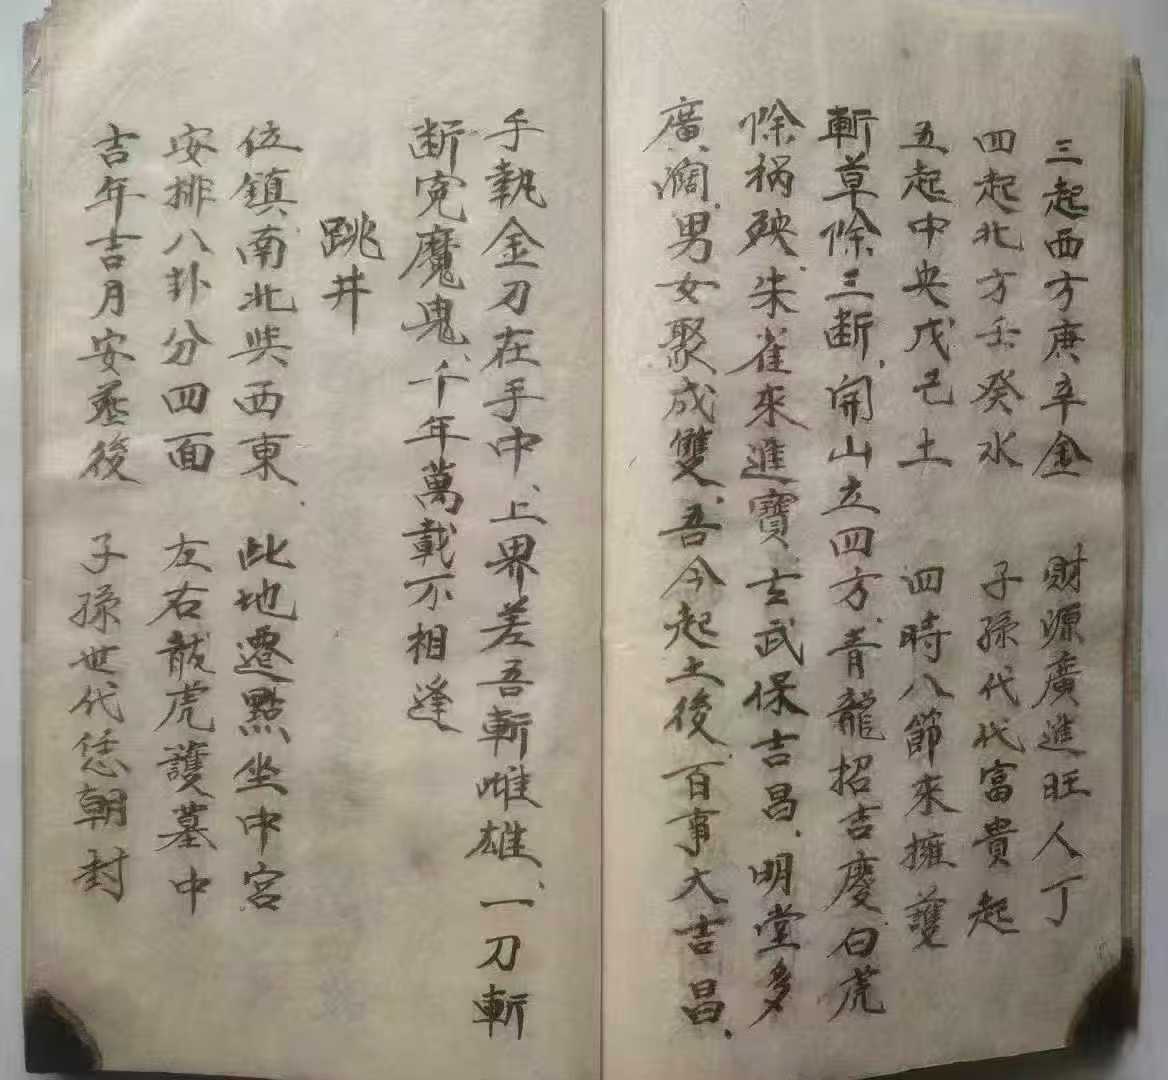 三起西方庚辛金　財源廣進旺人丁
四起北方壬癸水　子孫代代富貴起
五起中央戊己土　四時八節來擁護
斬草除三断、開山立四方、青龍招吉慶、白虎
除禍殃、朱雀來進寶、玄武保吉昌、明堂多
廣濶、男女聚成雙、吾今起土後、百事大吉昌、
手執金刀在手中、上界差吾斬雌雄、一刀斬
断冤魔鬼、千年萬載不相逢
跳井
位鎮南北與西東、此地遷點坐中宮
安排八卦分四面　左右龍虎護墓中
吉年吉月安葬後　子孫世代恁朝封